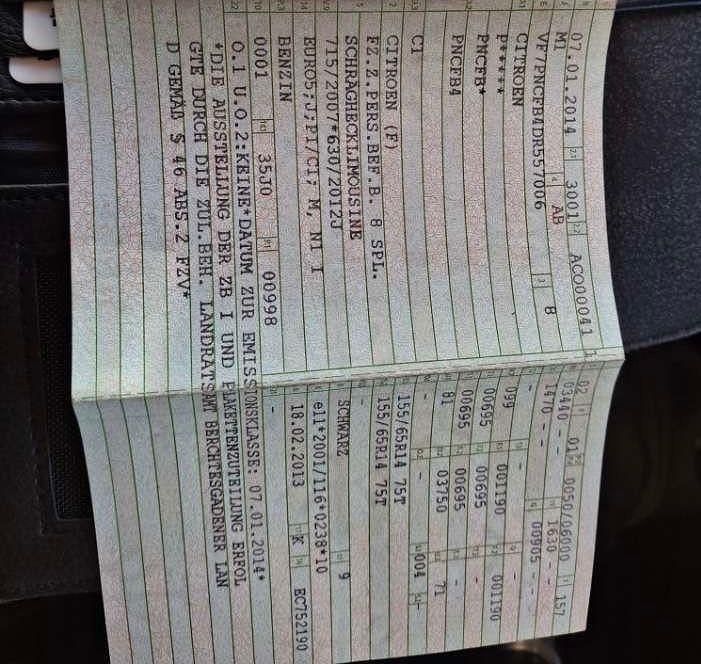 07.01.2014 3001 ACO000041 1
M1 AB
VF7PNCFB4DR557006 B
CITROEN
P*****
PNCFB*
PNCFB4
C1
CITROEN (F)
FZ.Z.PERS.BEF.B. 8 SPL.
SCHRÄGHECKLIMOUSINE
715/2007*630/2012J
EURO5;J;PI/CI; M, N1 I
BENZIN
0001 35J0 00998
02 01 0050/06000 157
03440 - - 1630 - -
1470 - - 00905 - - -
-
099 001190 -
00695 00695 - 001190
00695 00695 -
81 03750 - 71
- - 004 -
155/65R14 75T
155/65R14 75T
-
SCHWARZ 9
e11*2001/116*0238*10
18.02.2013 K EC752190
-
O.1 U.O.2:KEINE*DATUM ZUR EMISSIONSKLASSE: 07.01.2014*
*DIE AUSSTELLUNG DER ZB I UND PLAKETTENZUTEILUNG ERFOL
GTE DURCH DIE ZUL.BEH. LANDRATSAMT BERCHTESGADENER LAN
D GEMÄß § 46 ABS.2 FZV*